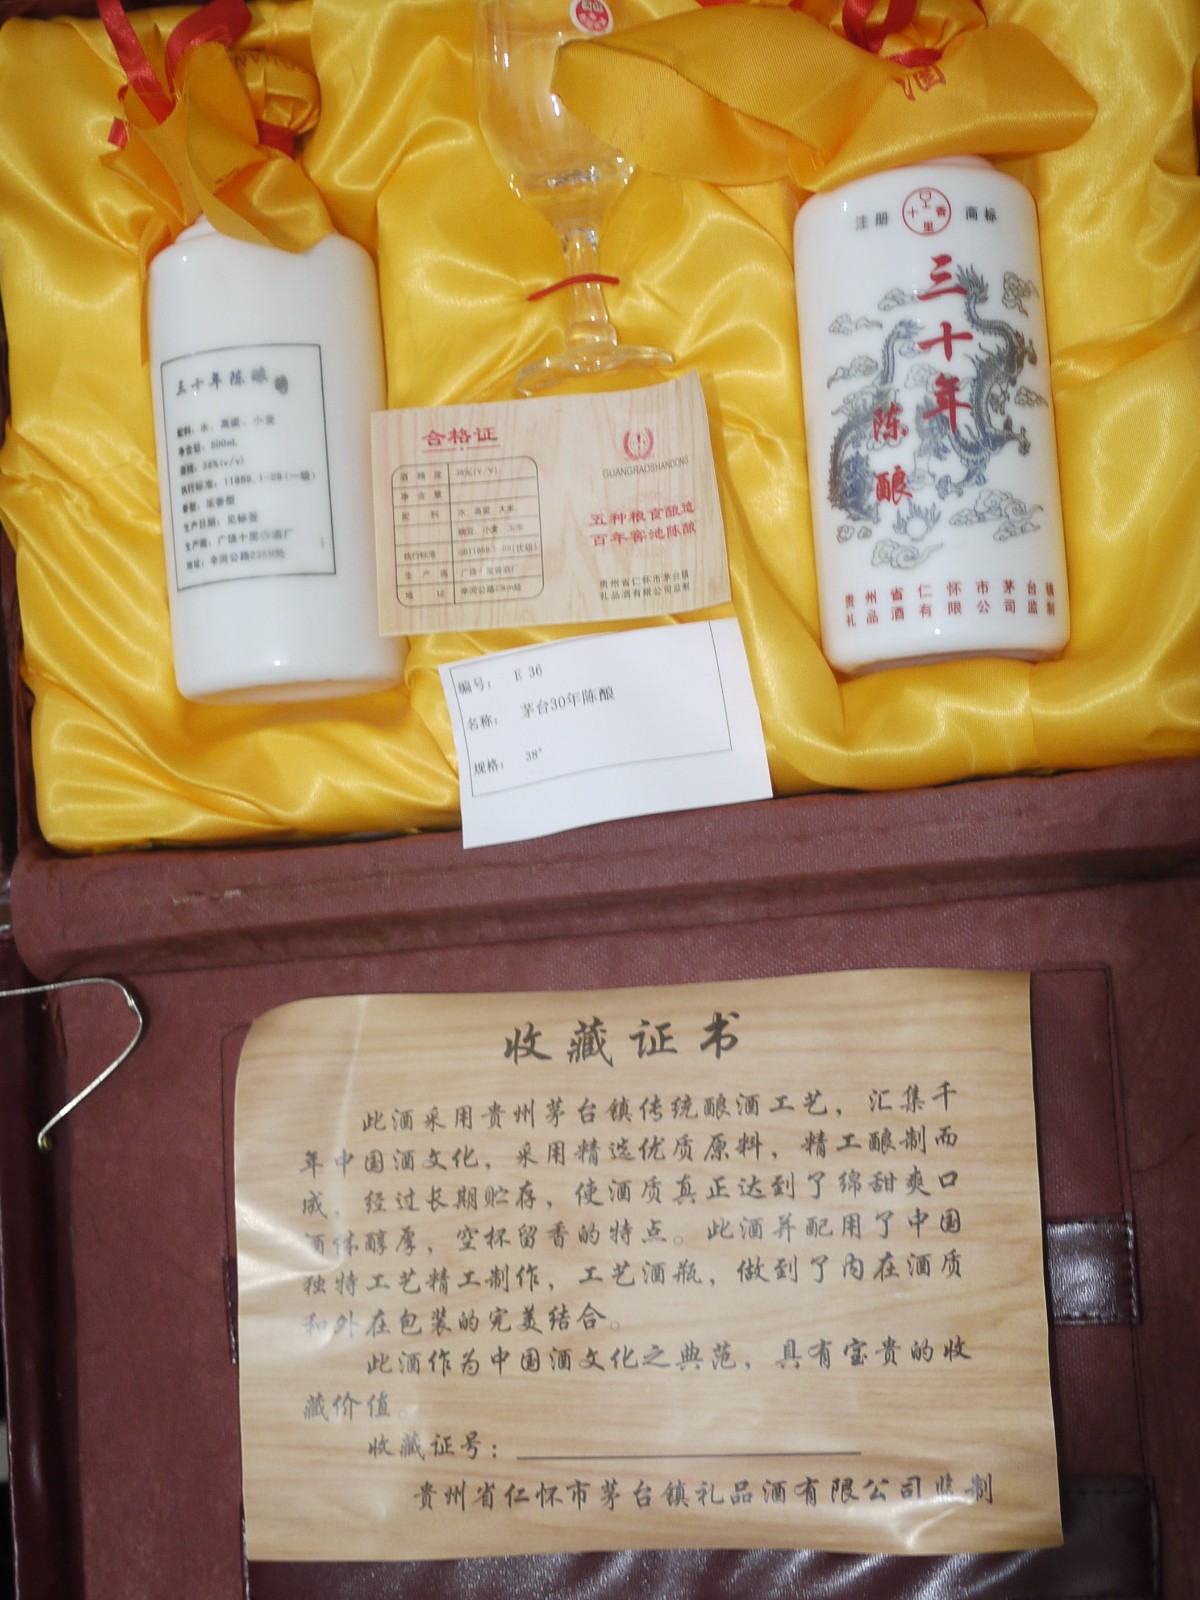 酒
三十年陈酿
配料：水、高粱、小麦
净含量：500mL
酒精：38%(v/v)
生产日期：见标签
合格证
酒精度 38%(V/V)
净含量
配料 水、高粱、大米
豌豆、小麦、玉米
执行标准
生产商
地址
GUANGRAOSHANDONG
五种粮食酿造
百年窖池陈酿
贵州省仁怀市茅台镇
礼品酒有限公司监制
编号： E 36
名称： 茅台30年陈酿
规格： 38°
注册 十里香 商标
三十年
陈酿
贵州省仁怀市茅台镇
礼品酒有限公司监制
收藏证书
此酒采用贵州茅台镇传统酿酒工艺，汇集千
年中国酒文化，采用精选优质原料，精工酿制而
成，经过长期贮存，使酒质真正达到了绵甜爽口
酒体醇厚，空杯留香的特点。此酒并配用了中国
独特工艺精工制作，工艺酒瓶，做到了内在酒质
和外在包装的完美结合。
此酒作为中国酒文化之典范，具有宝贵的收
藏价值。
收藏证号：
贵州省仁怀市茅台镇礼品酒有限公司监制